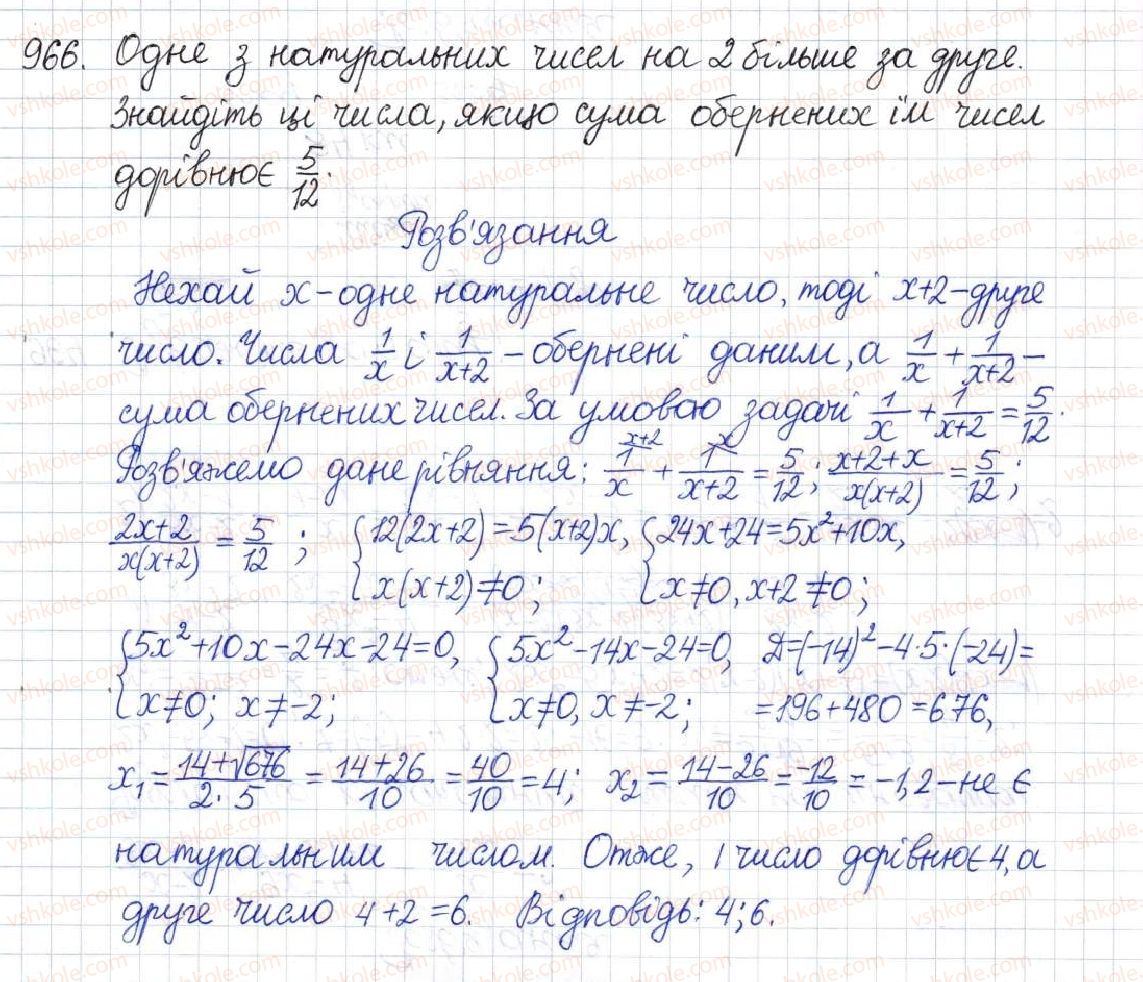 966. Одне з натуральних чисел на 2 більше за друге.
Знайдіть ці числа, якщо сума обернених їм чисел
дорівнює 5/12.
Розв'язання
Нехай x – одне натуральне число, тоді x+2 – друге
число. Числа 1/x і 1/(x+2) – обернені даним, а 1/x + 1/(x+2) –
сума обернених чисел. За умовою задачі 1/x + 1/(x+2) = 5/12.
Розв'яжемо дане рівняння: x+2 1/x + x 1/(x+2) = 5/12; (x+2+x)/(x(x+2)) = 5/12;
(2x+2)/(x(x+2)) = 5/12; { 12(2x+2)=5(x+2)x, { 24x+24=5x²+10x,
x(x+2)≠0; x≠0, x+2≠0;
{ 5x²+10x-24x-24=0, { 5x²-14x-24=0, Д=(-14)²-4·5·(-24)=
x≠0; x≠-2; x≠0, x≠-2; =196+480=676,
x₁ = (14+√676)/(2·5) = (14+26)/10 = 40/10 = 4; x₂ = (14-26)/10 = -12/10 = -1,2 – не є
натуральним числом. Отже, 1 число дорівнює 4, а
друге число 4+2=6. Відповідь: 4; 6.